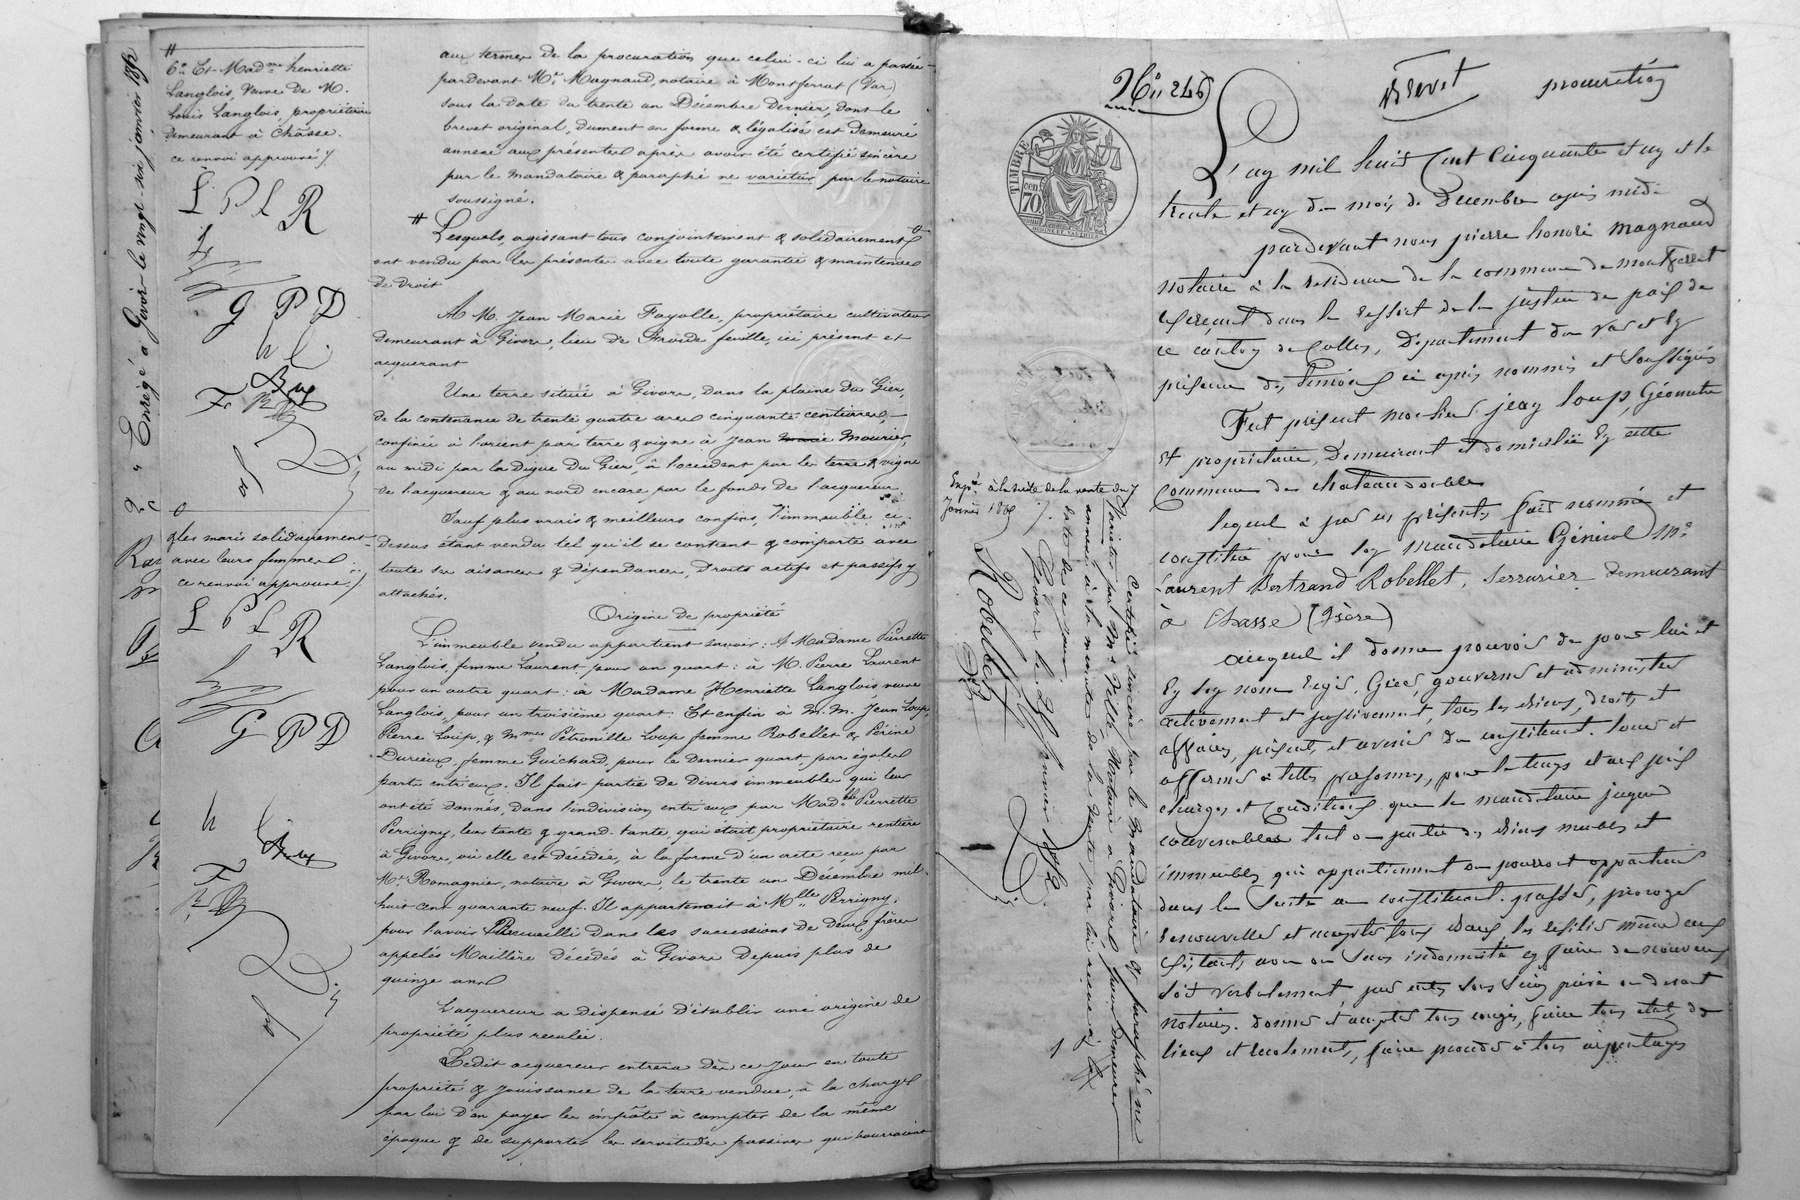 #
6° Et Mad.me henriette
Langlois, Veuve de M.
Louis Langlois, propriétaire
demeurant à Chasse.
ce renvoi approuvé
L P L R
G P D
les maris solidairement
avec leurs femmes
ce renvoi approuvé
L P L R
G P D
aux termes de la procuration que celui-ci lui a passée
pardevant Me Magnaud, notaire à Montferrat (Var)
sous la date du trente un Décembre dernier, dont le
brevet original, dument en forme & légalisé est demeuré
annexé aux présentes après avoir été certifié sincère
par le mandataire & paraphé ne varietur par le notaire
soussigné.
# Lesquels, agissant tous conjointement & solidairement
ont vendu par les présentes avec toute garantie & maintenue
de droit
A M. Jean Marie Fayolle, propriétaire cultivateur
demeurant à Givors, lieu de Froide feuille, ici présent et
acquerant
Une terre située à Givors, dans la plaine du Gier,
de la contenance de trente quatre ares cinquante centiares,
confinée à l'orient par terre & vigne à Jean Marie Mourier,
au midi par la Digue du Gier, à l'occident par les terre & vigne
de l'acquereur & au nord encore par le fonds de l'acquereur
Sauf plus vrais & meilleurs confins, l'immeuble ci-
dessus étant vendu tel qu'il se contient & comporte avec
toute ses aisances & dépendances, droits actifs et passifs y
attachés.
Origine de propriété
L'immeuble vendu appartient savoir: A Madame Pierrette
Langlois, femme Laurent, pour un quart: à M. Pierre Laurent
pour un autre quart: à Madame Henriette Langlois veuve
Langlois, pour un troisième quart. Et enfin à M.M. Jean Loup,
Pierre Loup, & Mmes Pétronille Loup femme Robellet & Périne
Durieux, femme Guichard, pour le dernier quart, par égales
parts entr'eux. Il fait partie de divers immeubles qui leur
ont été donnés, dans l'indivision entr'eux par Mad.lle Pierrette
Perrigny, leur tante & grand-tante, qui était propriétaire rentière
à Givors, où elle est décédée, à la forme d'un acte reçu par
Me Romagnier, notaire à Givors, le trente un Décembre mil
huit cent quarante neuf. Il appartenait à Mlle Perrigny,
pour l'avoir Recueilli dans les successions de deux frères
appelés Maillère décédés à Givors depuis plus de
quinze ans
L'acquereur a dispensé d'établir une origine de
propriété plus reculée.
Ledit acquereur entrera dès ce jour en toute
propriété & jouissance de la terre vendue, à la charge
par lui d'en payer les impôts à compter de la même
époque & de supporter les servitudes passives qui pourraient
No 246
Brevet procuration
TIMBRE
70
L'an mil huit Cent Cinquante et un et le
trente et un du mois de Decembre après midi
pardevant nous pierre honoré magnaud
notaire à la residence de la commune de montferrat
exerçant dans le ressort de la justice de paix de
ce canton de Callas, Departement du var et En
présence des témoins ci après nommés et soussignés
Fut présent monsieur jean loup, Géomètre
et propriétaire, Demeurant et domicilié En cette
Commune de chateaudouble
lequel a par ces présentes fait nommé et
constitué pour son mandataire Général Mr
Laurent Bertrand Robellet, Serrurier demeurant
à Chasse (Isère)
auquel il donne pouvoir de pour lui et
En son nom regir, Gérer, gouverner et administrer
activement et passivement, tous les biens, droits et
affaires, présents et avenir du constituant. louer et
affermer à telles personnes, pour le temps et aux prix
charges et Conditions que le mandataire jugera
convenables tout ou partie des biens meubles et
immeubles qui appartiennent ou pourront appartenir
dans la suite au constituant. passer, proroger
renouveller et accepter tous baux, les resilier même ceux
Existants avec ou Sans indemnité en faire de nouveaux
Soit verbalement, par actes Sous Seing privé ou devant
notaires. donner et accepter tous congés, faire tous états de
lieux et recolements, faire procéder à tous arpentages
Certifié sincère par le mandataire & paraphé ne
Varietur par Me notaire à Givors, pour demeurer
annexé à la minute de la vente par lui reçue
date de ce jour
Givors, le Janvier 1852.
Robellet